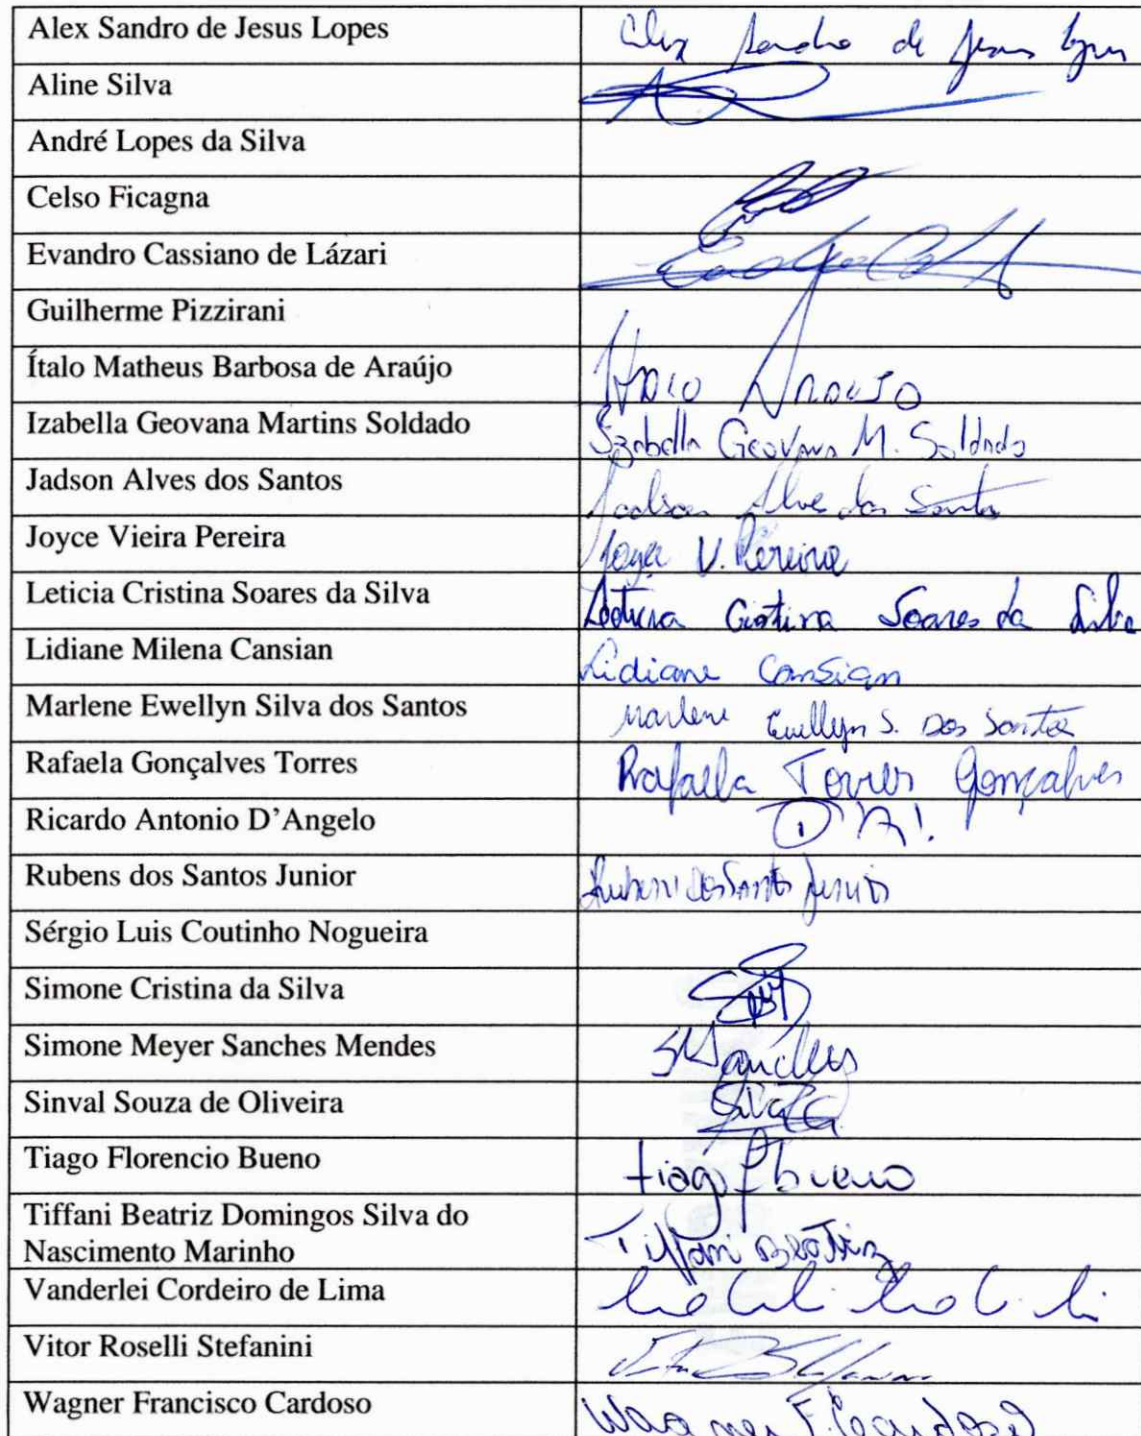 Alex Sandro de Jesus Lopes Alex Sandro de Jesus Lopes
Aline Silva
André Lopes da Silva
Celso Ficagna
Evandro Cassiano de Lázari
Guilherme Pizzirani
Ítalo Matheus Barbosa de Araújo Ítalo Araujo
Izabella Geovana Martins Soldado Izabella Geovana M. Soldado
Jadson Alves dos Santos Jadson Alve dos Santos
Joyce Vieira Pereira Joyce V. Pereira
Leticia Cristina Soares da Silva Leticia Cristina Soares da Silva
Lidiane Milena Cansian Lidiane Cansian
Marlene Ewellyn Silva dos Santos Marlene Ewellyn S. Dos Santos
Rafaela Gonçalves Torres Rafaella Torres Gonçalves
Ricardo Antonio D’Angelo
Rubens dos Santos Junior Rubens dos Santos Junior
Sérgio Luis Coutinho Nogueira
Simone Cristina da Silva
Simone Meyer Sanches Mendes
Sinval Souza de Oliveira
Tiago Florencio Bueno tiago f bueno
Tiffani Beatriz Domingos Silva do
Nascimento Marinho Tiffani Beatriz
Vanderlei Cordeiro de Lima
Vitor Roselli Stefanini
Wagner Francisco Cardoso Wagner F. Cardoso